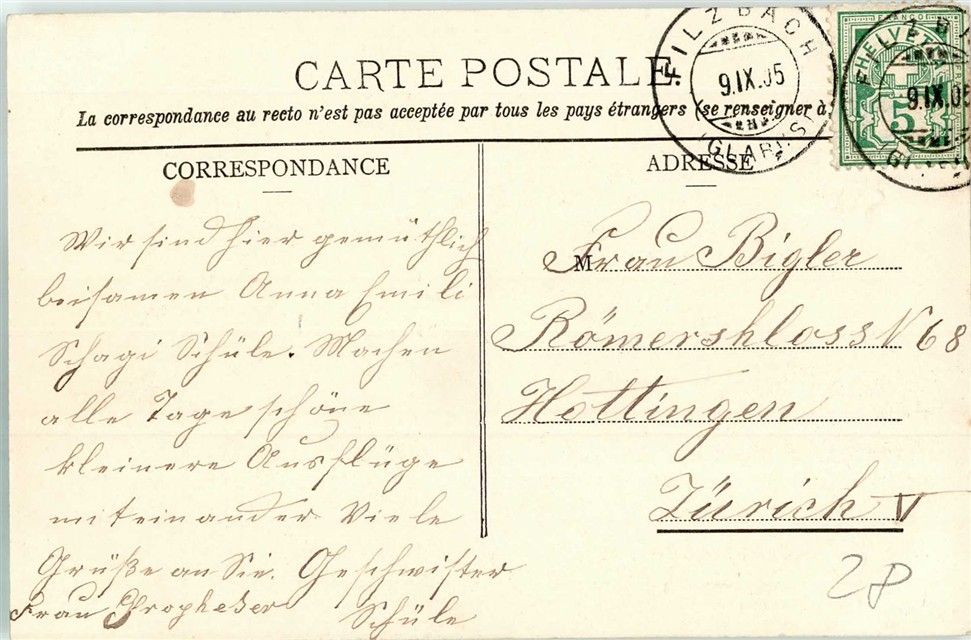 CARTE POSTALE
La correspondance au recto n'est pas acceptée par tous les pays étrangers (se renseigner à
FILZBACH
9.IX.05
(GLARUS)
FRANCO
HELVETIA
5
FILZBA
9.IX.05
CORRESPONDANCE
Wir sind hier gemüthlich
beisamen Anna Emili
Schagi Schüle. Machen
alle Tage schöne
kleinere Ausflüge
miteinander Viele
Grüße an Sie. Geschwister
Frau Schüle
ADRESSE
M
Frau Bigler
Römershloss N 68
Hottingen
Zürich V
28